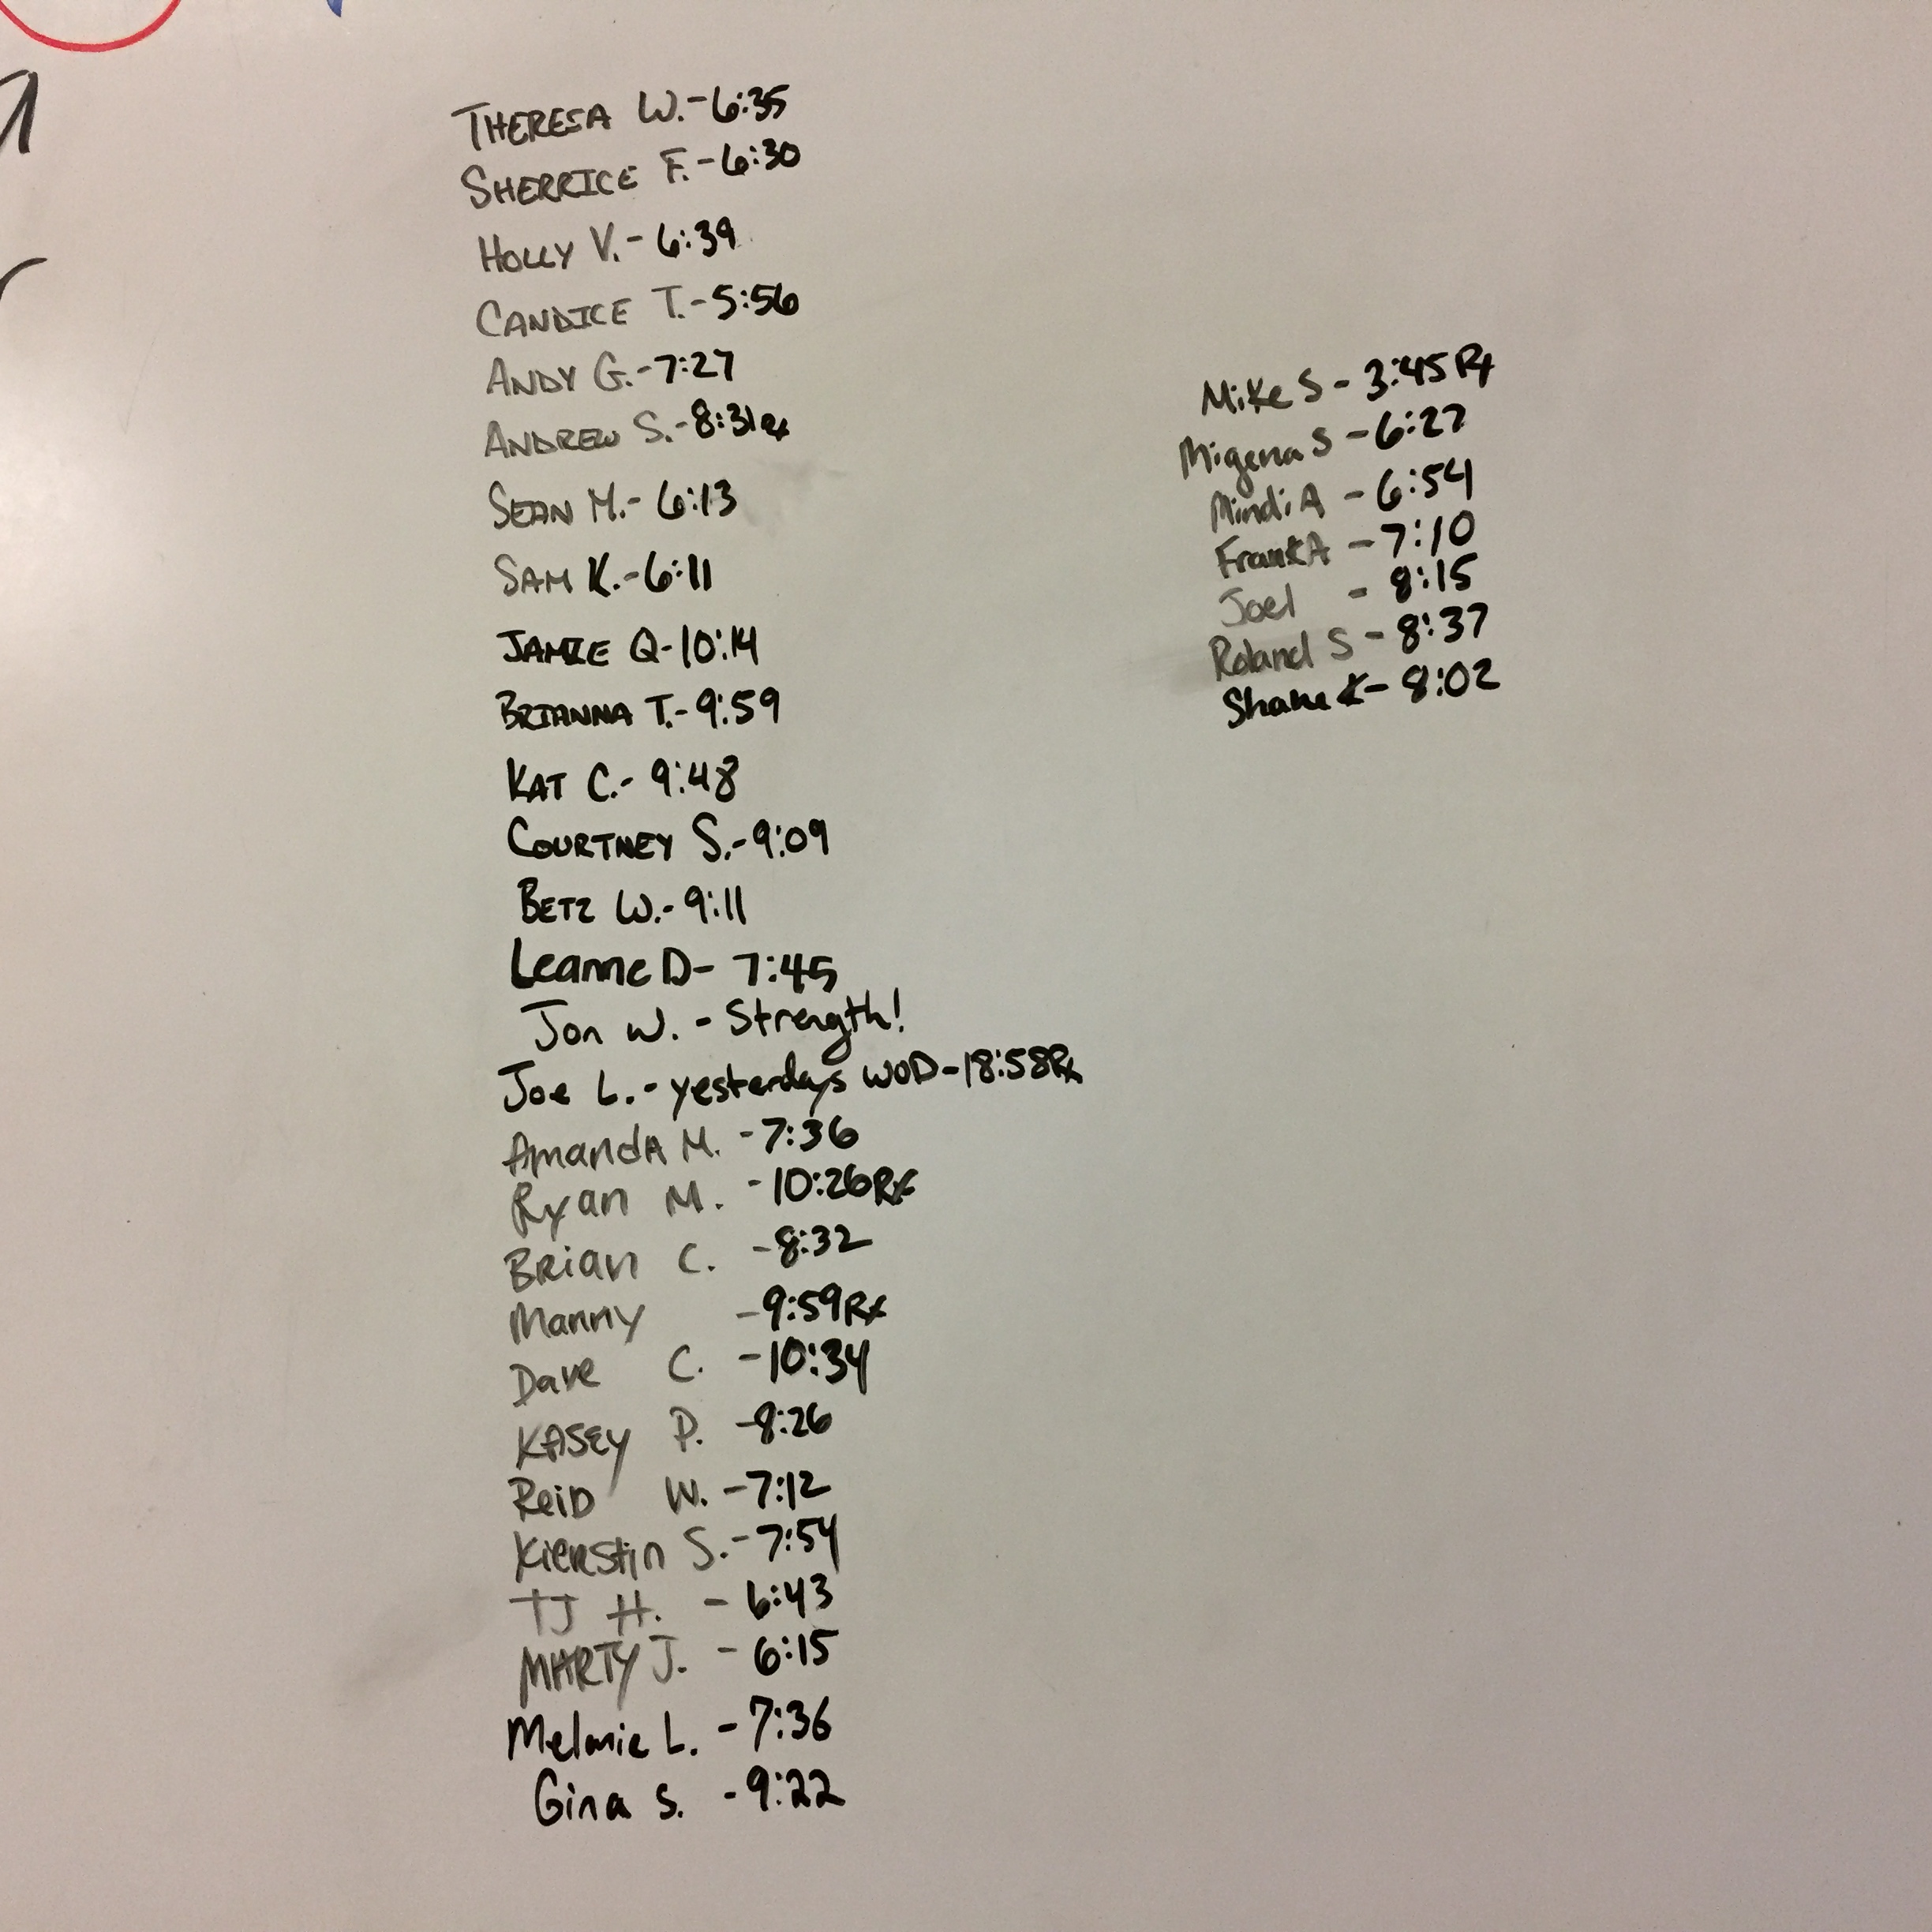 THERESA W.-6:35
SHERRICE F.-6:30
HOLLY V.- 6:39
CANDICE T.-5:56
ANDY G.-7:27
ANDREW S.-8:31Rx
SEAN M.- 6:13
SAM K.-6:11
JAMIE Q-10:14
BRIANNA T.-9:59
KAT C.- 9:48
COURTNEY S.-9:09
BETZ W.-9:11
Leanne D- 7:45
Jon W. - Strength!
Joe L.- yesterdays WOD-18:58Rx
AmandA M. -7:36
Ryan M. -10:26Rx
BRian C. -8:32
Manny -9:59Rx
Dave C. -10:34
KASEY P. -8:26
ReiD W. -7:12
Kierstin S.-7:54
TJ H. - 6:43
MARTY J. - 6:15
Melanie L. -7:36
Gina S. -9:22
Mike S - 3:45Rx
Migena S -6:27
Mindi A - 6:54
Frank A -7:10
Joel - 8:15
Roland S - 8:37
Shane K- 8:02